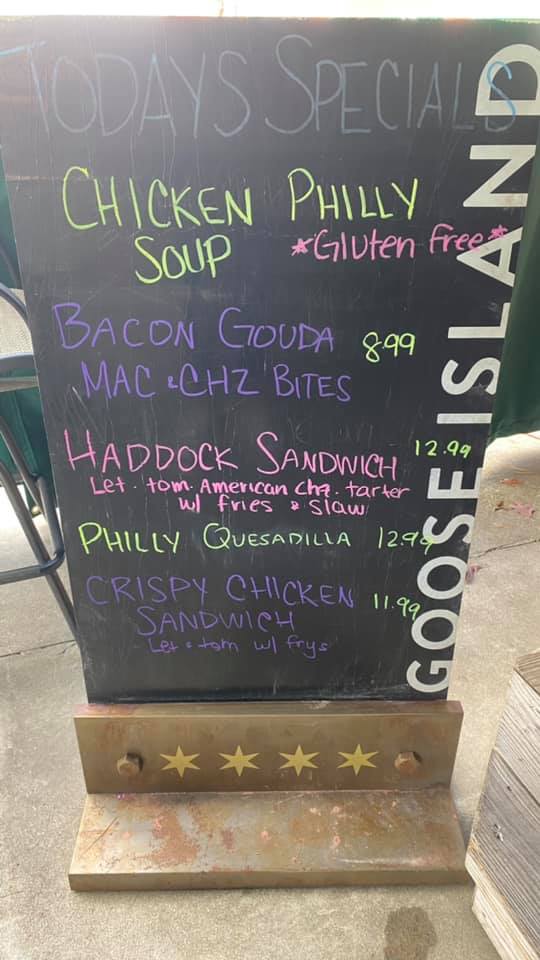 TODAYS SPECIALS
CHICKEN PHILLY
SOUP *Gluten Free*
BACON GOUDA 8.99
MAC & CHZ BITES
HADDOCK SANDWICH 12.99
Let. tom. American chz. tarter
w/ fries & slaw
PHILLY QUESADILLA 12.99
CRISPY CHICKEN 11.99
SANDWICH
Let & tom w/ frys
GOOSE ISLAND